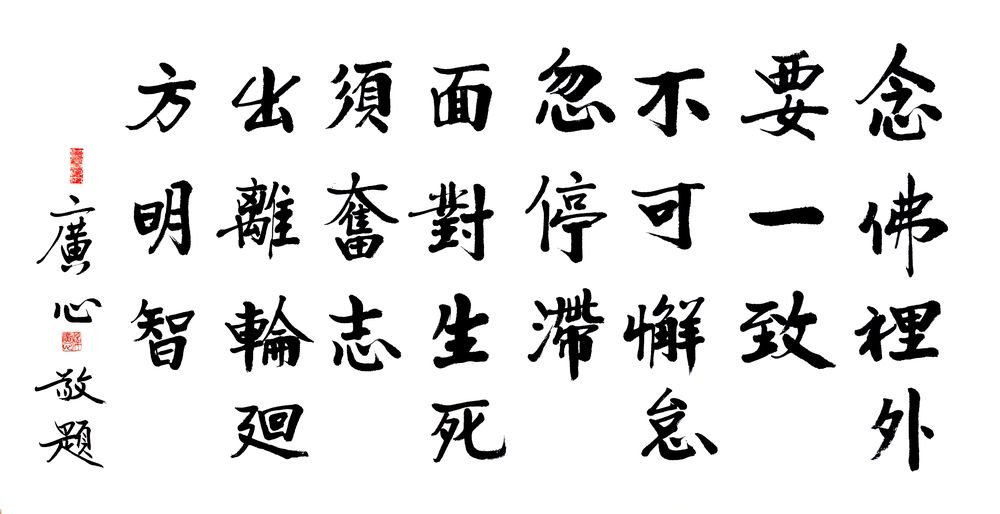 念佛裡外
要一致
不可懈怠
忽停滯
面對生死
須奮志
出離輪廻
方明智
廣心敬題